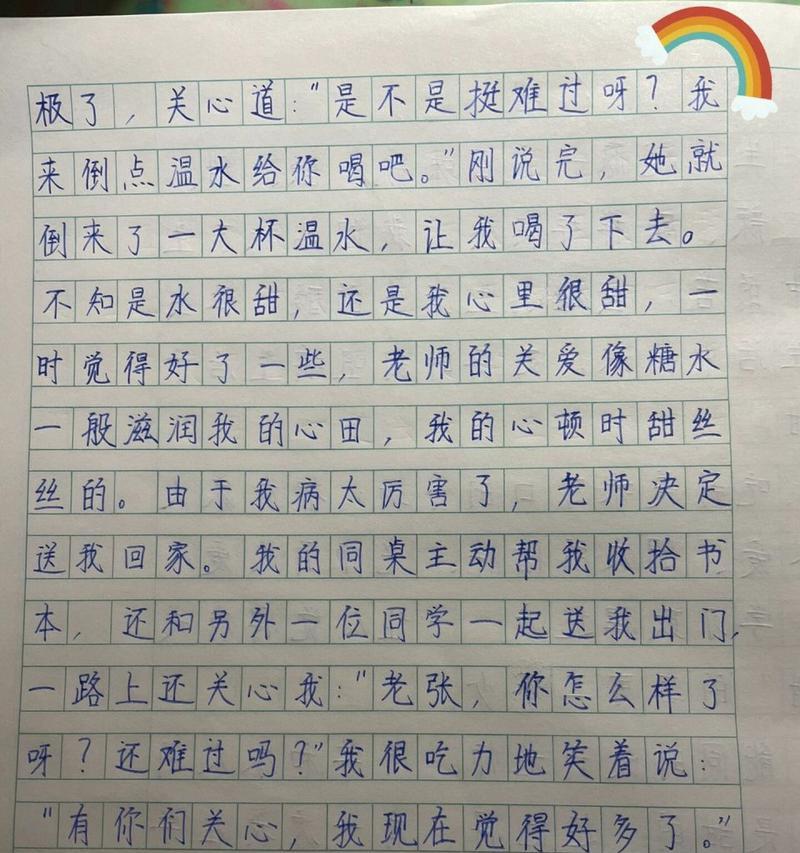 极了，关心道：“是不是挺难过呀？我
来倒点温水给你喝吧。”刚说完，她就
倒来了一大杯温水，让我喝了下去。
不知是水很甜，还是我心里很甜，一
时觉得好了一些，老师的关爱像糖水
一般滋润我的心田，我的心顿时甜丝
丝的。由于我病太厉害了，老师决定
送我回家。我的同桌主动帮我收拾书
本，还和另外一位同学一起送我出门，
一路上还关心我：“老张，你怎么样了
呀？还难过吗？”我很吃力地笑着说：
“有你们关心，我现在觉得好多了。”